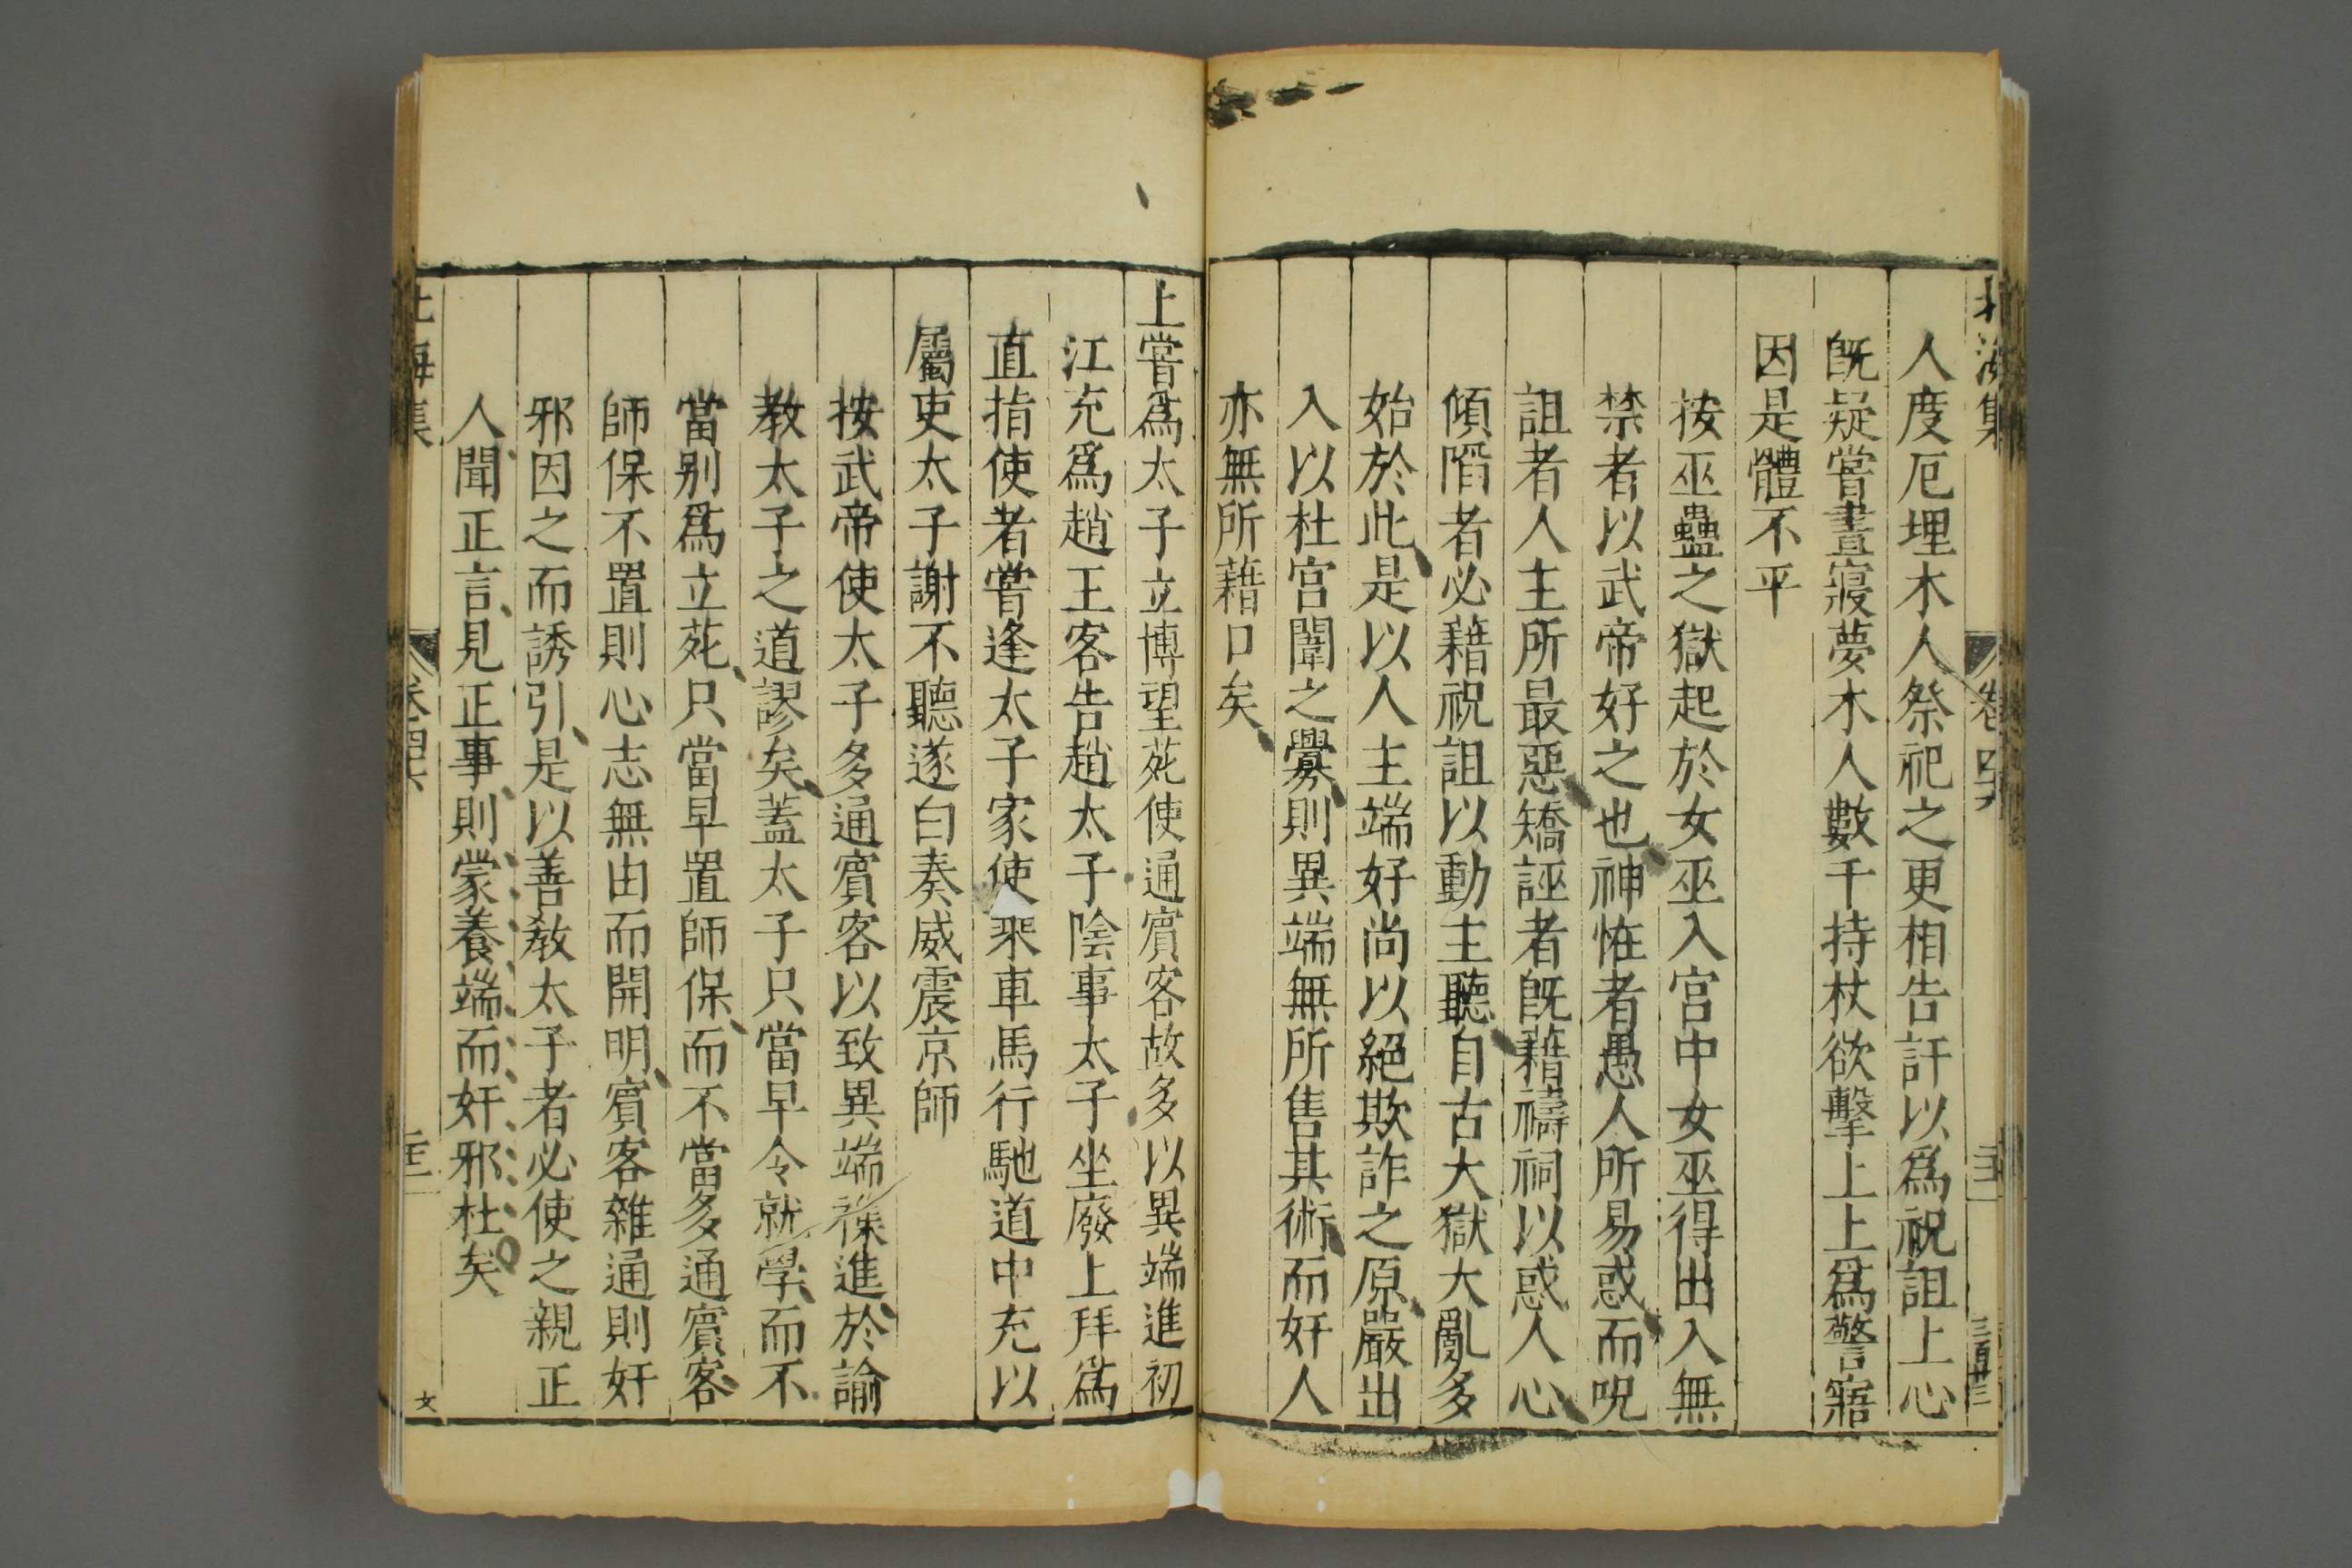 北海集
卷四六
人度厄埋木人祭祀之更相告訐以爲祝詛上心
旣疑嘗晝寢夢木人數千持杖欲擊上上爲警寤
因是體不平
按巫蠱之獄起於女巫入宮中女巫得出入無
禁者以武帝好之也神恠者愚人所易惑而呪
詛者人主所最惡矯誣者旣藉禱祠以惑人心
傾陷者必藉祝詛以動主聽自古大獄大亂多
始於此是以人主端好尚以絕欺詐之原嚴出
入以杜宮闈之釁則異端無所售其術而奸人
亦無所藉口矣
上嘗爲太子立博望苑使通賓客故多以異端進初
江充爲趙王客告趙太子陰事太子坐廢上拜爲
直指使者嘗逢太子家使乘車馬行馳道中充以
屬吏太子謝不聽遂白奏威震京師
按武帝使太子多通賓客以致異端襍進於諭
教太子之道謬矣蓋太子只當早令就學而不
當别爲立苑只當早置師保而不當多通賓客
師保不置則心志無由而開明賓客雜通則奸
邪因之而誘引是以善敎太子者必使之親正
人聞正言見正事則蒙養端而奸邪杜矣
北海集
卷四六
文